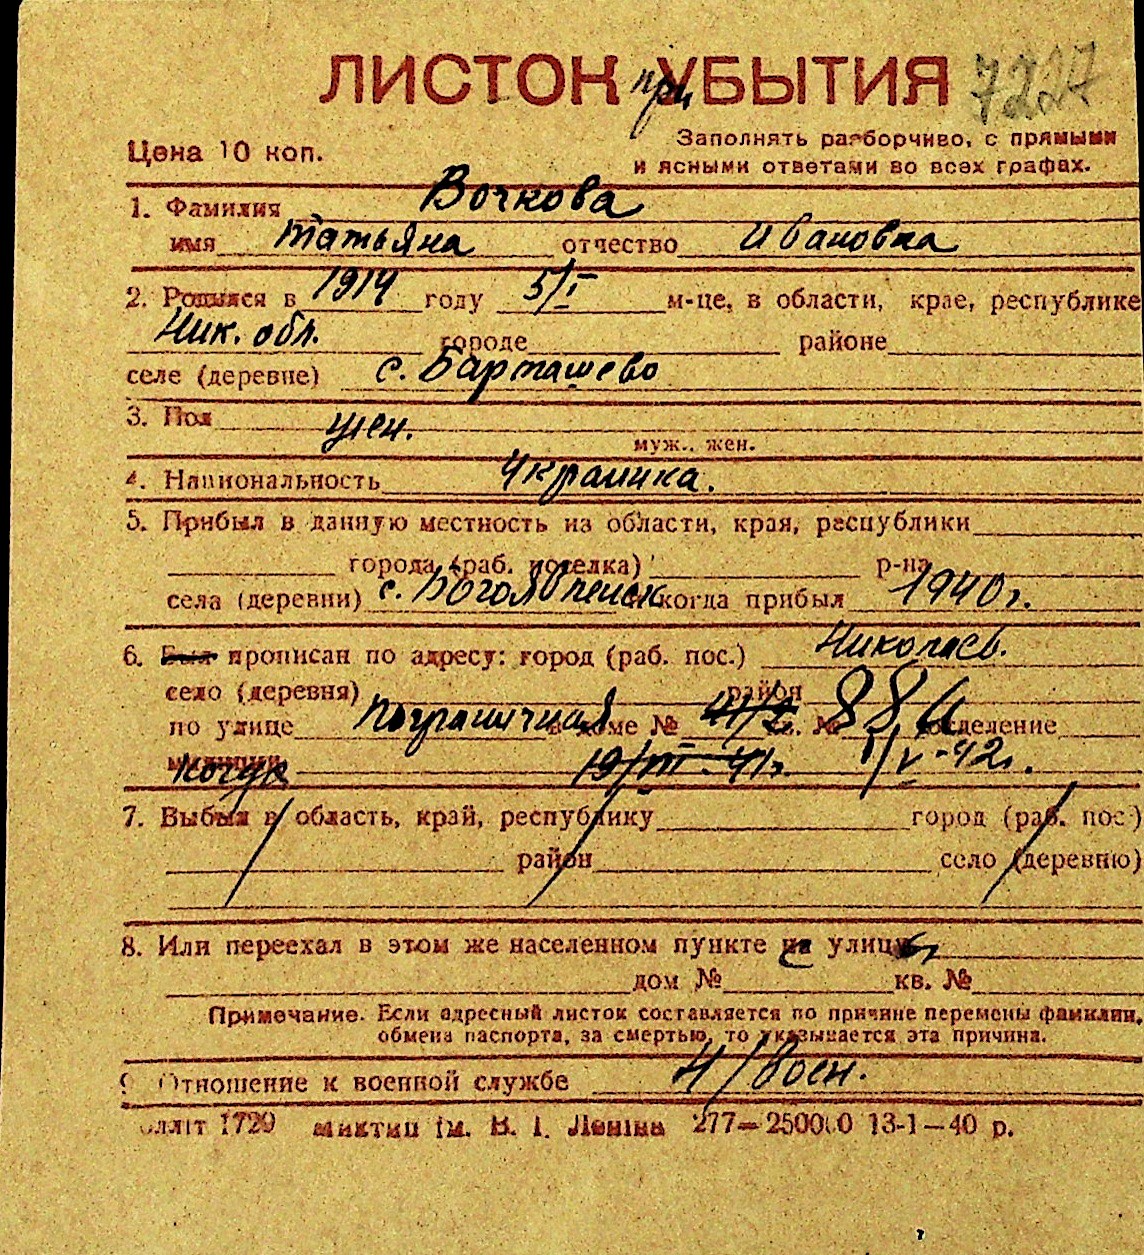 ЛИСТОК при УБЫТИЯ 7227
Цена 10 коп.
Заполнять разборчиво, с прямыми
и ясными ответами во всех графах.
1. Фамилия Вочкова
имя Татьяна отчество Ивановна
2. Родился в 1914 году 5/I м-це, в области, крае, республике
Ник. обл. городе районе
селе (деревне) с. Барташево
3. Пол жен.
муж., жен.
4. Национальность Украинка.
5. Прибыл в данную местность из области, края, республики
города (раб. поселка) р-на
села (деревни) с. Богоявленск когда прибыл 1940 г.
6. Был прописан по адресу: город (раб. пос.) Николаев.
село (деревня) район
по улице Пограничная в доме № 41/2 кв. № 88 отделение
милиции 19/III-41г. 1/V-42г.
7. Выбыл в область, край, республику город (раб. пос.)
район село (деревню)
8. Или переехал в этом же населенном пункте на улицу
дом № кв. №
Примечание. Если адресный листок составляется по причине перемены фамилии,
обмена паспорта, за смертью, то указывается эта причина.
9 Отношение к военной службе Н/воен.
1720 ім. В. І. Леніна 277—250000 13-1—40 р.